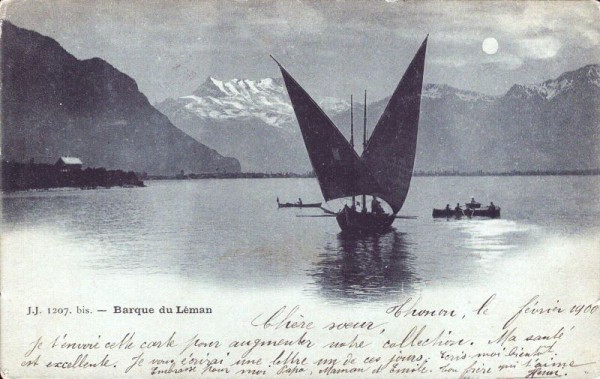 J.J. 1207. bis. — Barque du Léman
Thonon, le février 1900
Chère sœur,
Je t'envoie cette carte pour augmenter notre collection. Ma santé
est excellente. Je vous écrirai une lettre un de ces jours. Ecris-moi bientôt.
Embrasse pour moi Papa, Maman & Emile. Ton frère qui t'aime